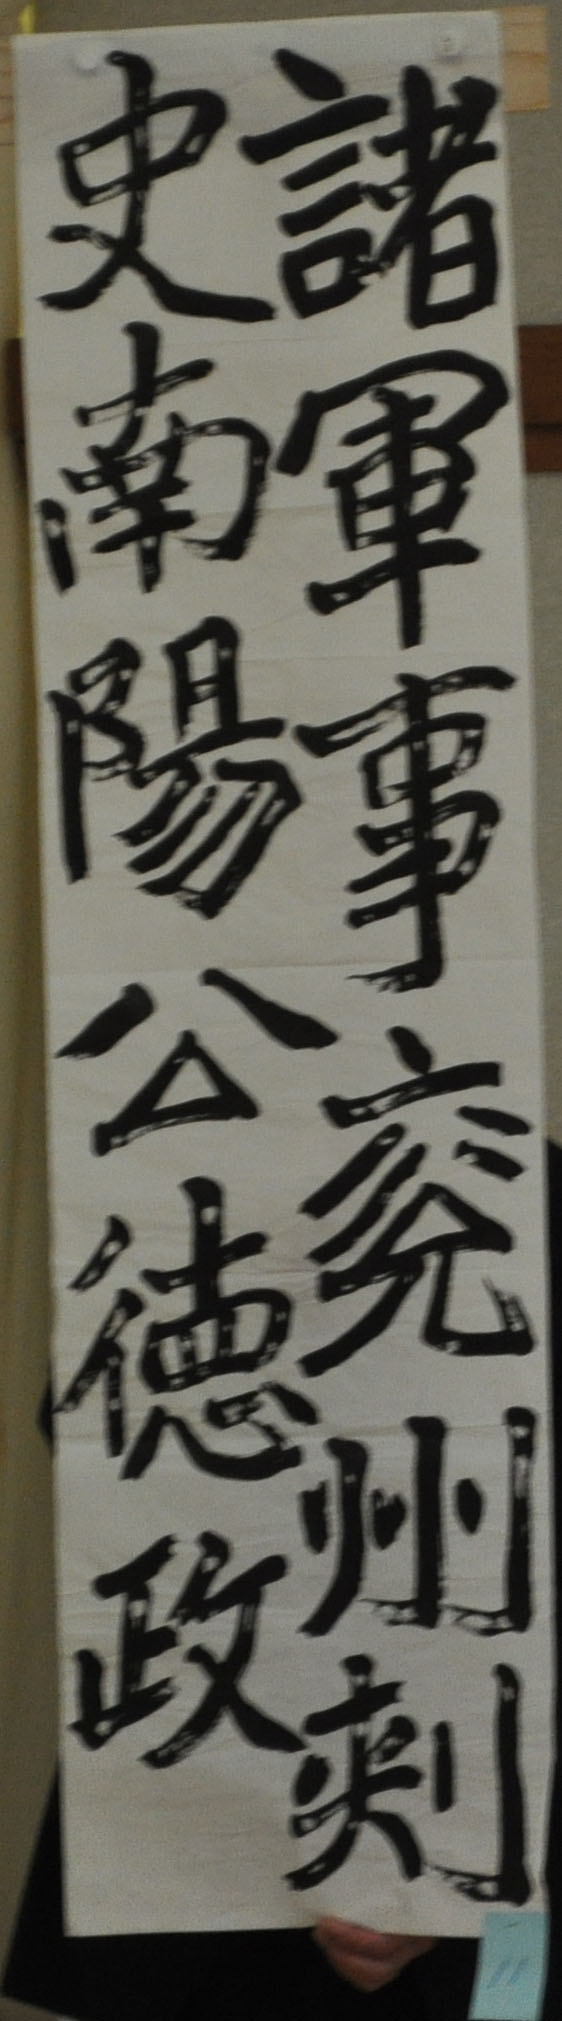 諸軍事兖州刺
史南陽公德政
11